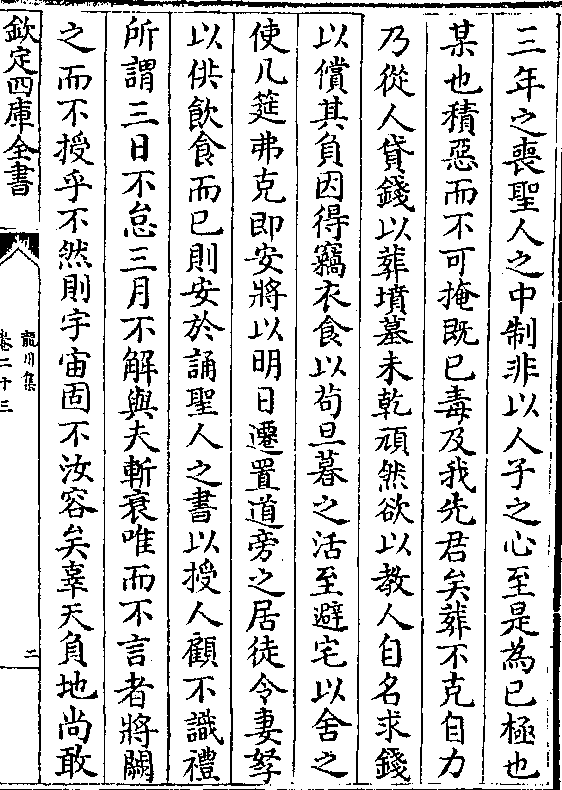 三年之喪聖人之中制非以人子之心至是為已極也
某也積惡而不可掩既已毒及我先君矣葬不克自力
乃從人貸錢以葬墳墓未乾頑然欲以教人自名求錢
以償其負因得竊衣食以苟旦暮之活至避宅以舍之
使几筵弗克即安將以明日遷置道旁之居徒令妻孥
以供飲食而已則安於誦聖人之書以授人顧不識禮
所謂三日不怠三月不解與夫斬衰唯而不言者將闕
之而不授乎不然則宇宙固不汝容矣辜天負地尚敢
欽定四庫全書
龍川集
卷二十三
二